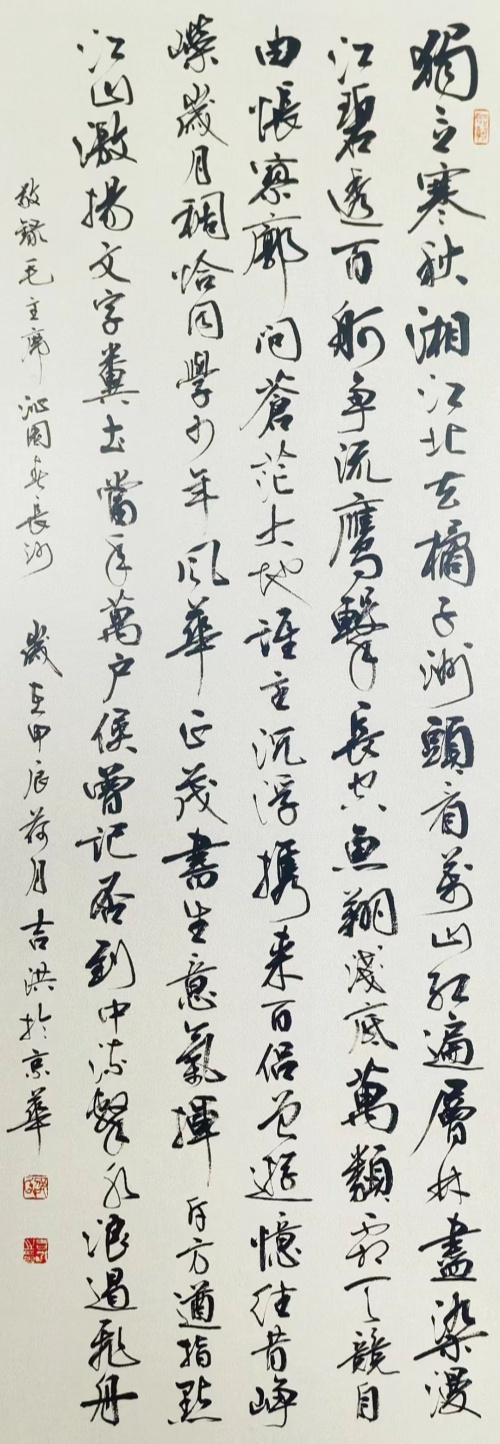 獨立寒秋湘江北去橘子洲頭看萬山紅遍層林盡染漫
江碧透百舸争流鷹擊長空魚翔淺底萬類霜天競自
由悵寥廓問蒼茫大地誰主沉浮携來百侣曾遊憶往昔崢
嶸歲月稠恰同學少年風華正茂書生意氣揮斥方遒指點
江山激揚文字糞土當年萬户侯曾記否到中流擊水浪遏飛舟
敬錄毛主席沁園春長沙 歲在甲辰荷月吉洪於京華